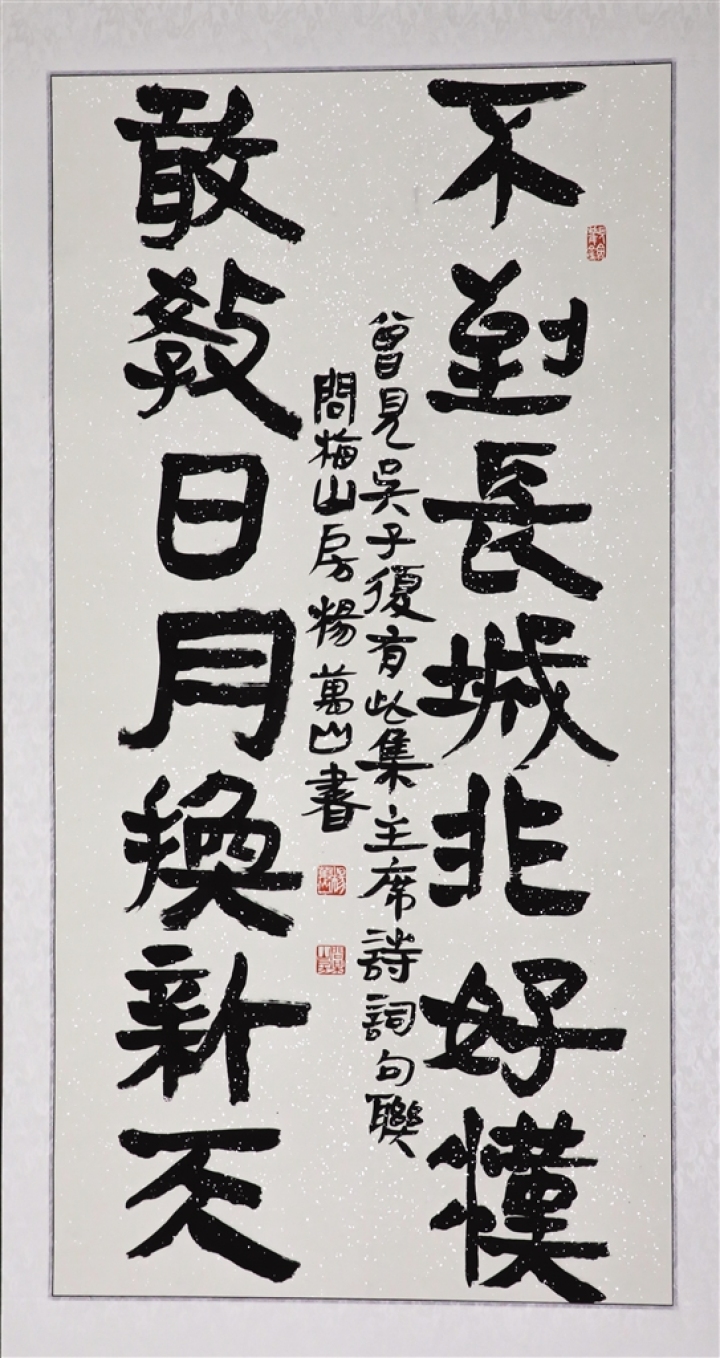 不到長城非好漢
敢教日月換新天
曾見吳子復有此集主席詩詞句聯
問梅山房楊萬山書